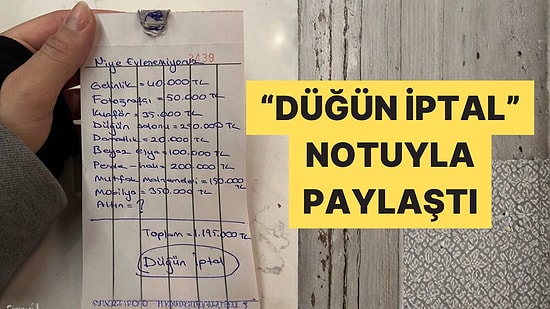 Niye Evlenemiyoruz
3439
Gelinlik = 40.000 TL
Fotoğrafçı = 50.000 TL
Kuaför = 35.000 TL
Düğün salonu = 250.000 TL
Damatlık = 20.000 TL
Beyaz Eşya = 100.000 TL
Perde - halı = 200.000 TL
Mutfak malzemeleri = 150.000 TL
Mobilya = 350.000 TL
Altın = ?
Toplam = 1.195.000 TL
Düğün iptal
“DÜĞÜN İPTAL”
NOTUYLA
PAYLAŞTI